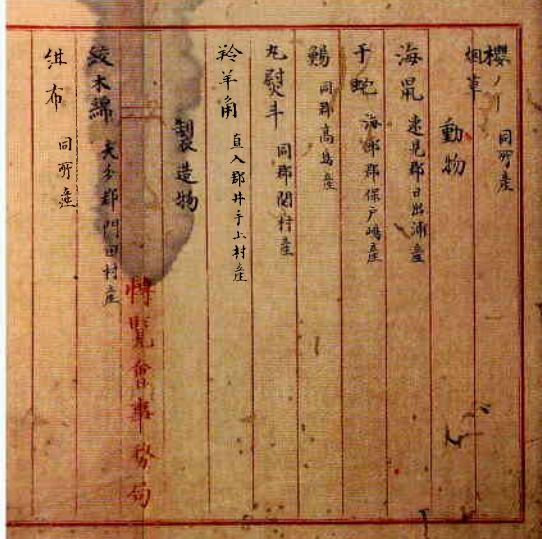 櫻ノ丨
烟草 同所産
動物
海鼠 速見郡日出浦産
干蛇 海部郡保戸嶋産
鯣 同郡高島産
丸熨斗 同郡関村産
羚羊角 直入郡井手上村産
製造物
博覽會事務局
絞木綿 大分郡門田村産
紺布 同所産